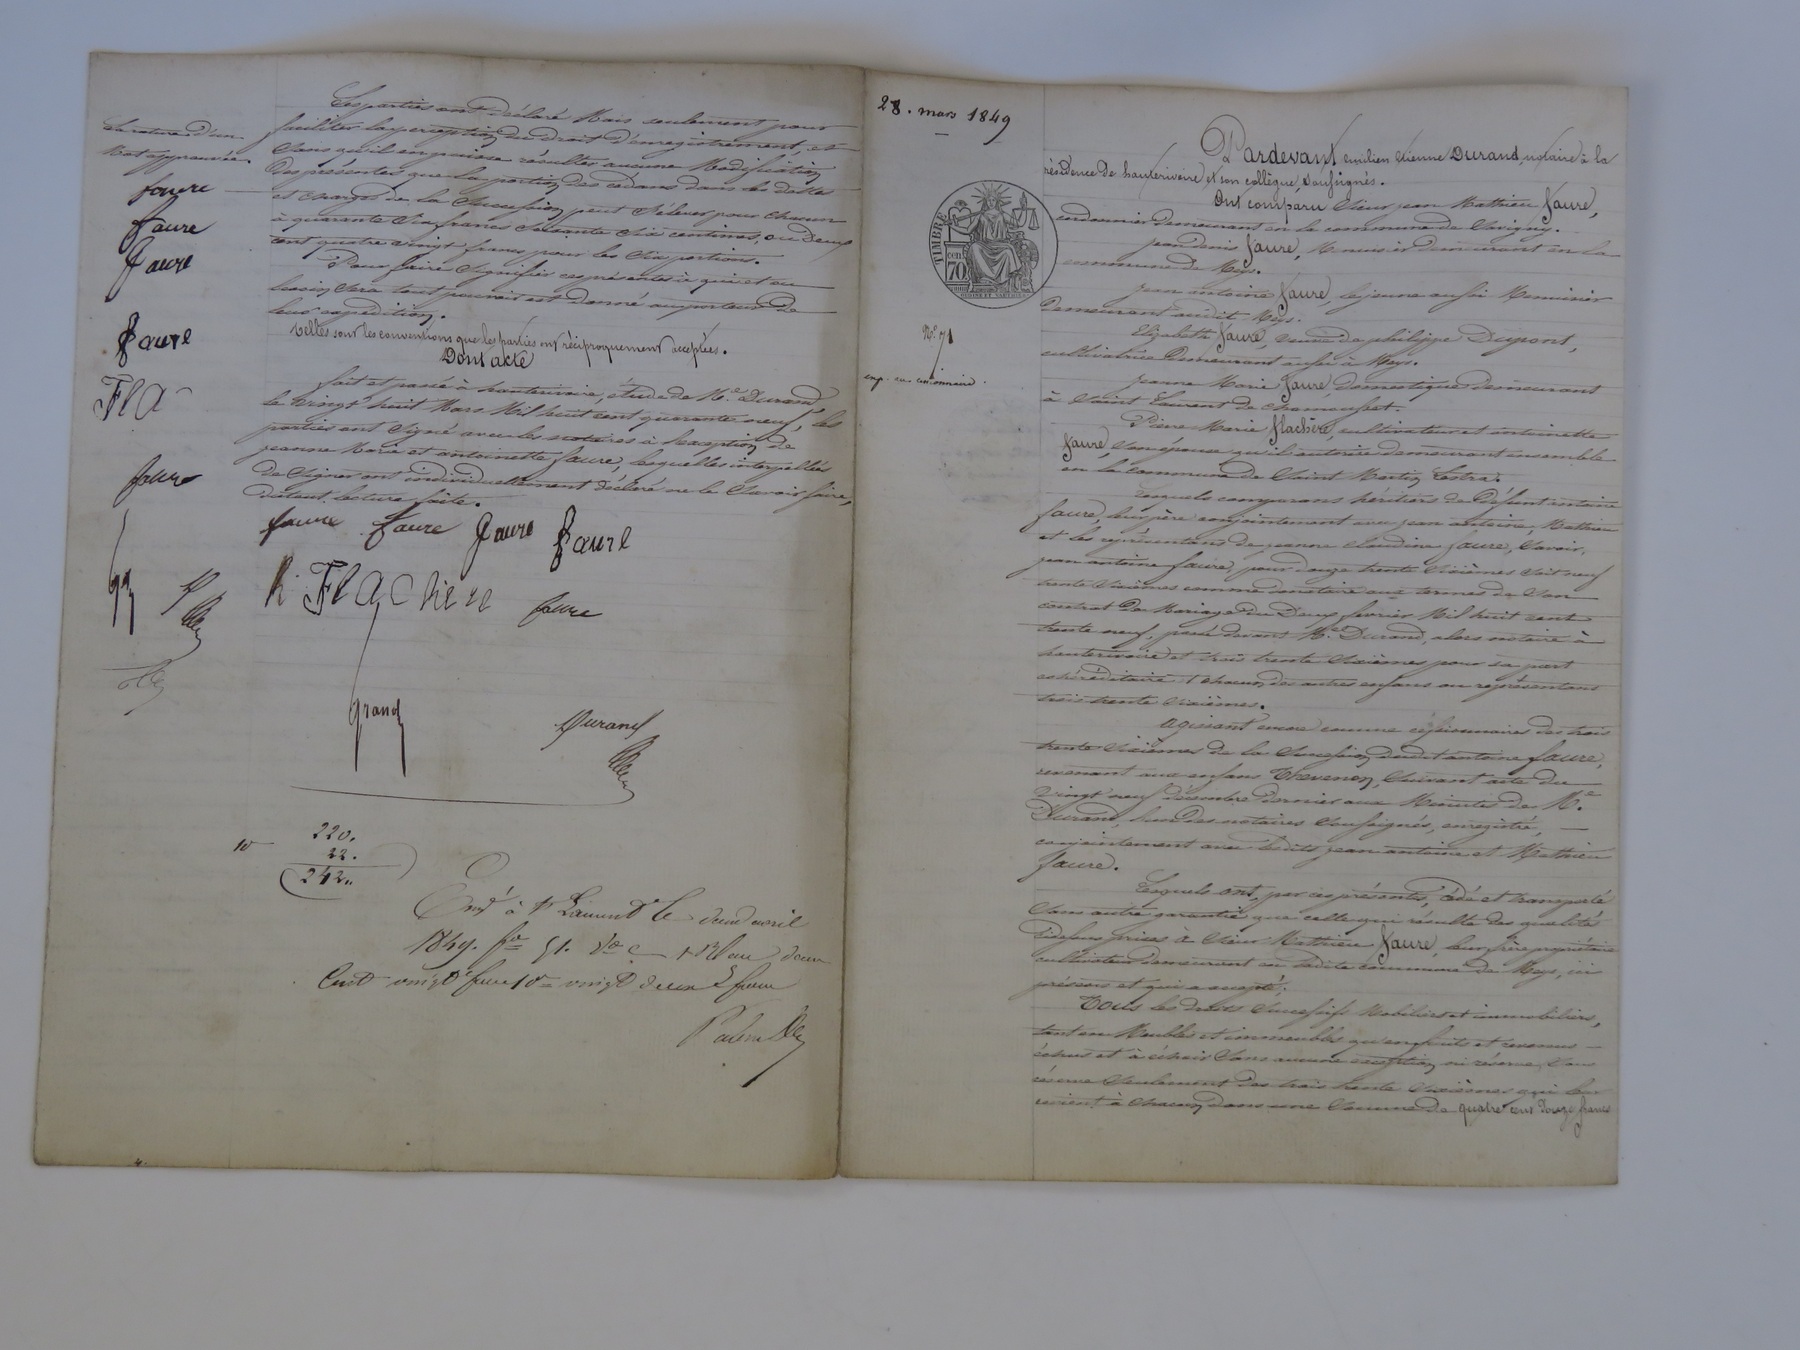 Les parties ont déclaré Mais seulement pour
faciliter la perception du droit d'enregistrement, et
sans qu'il en puisse résulter aucune Modification
des présentes que la portion des cédans dans les dettes
et charges de la succession peut s'élever pour chacun
à quarante six francs soixante six centimes, ou deux
cent quatre vingt francs pour les six portions.
Pour faire signifier ces présentes à qui et au
besoin sera tout pouvoir est donné au porteur de
leur expédition.
telles sont les conventions que les parties ont réciproquement acceptées.
Dont acte
fait et passé à hauterivoire, étude de Me. Durand,
le vingt huit Mars Mil huit cent quarante neuf, les
parties ont signé avec les notaires à l'exception de
jeanne Marie et antoinette faure, lesquelles interpellées
de signer ont individuellement déclaré ne le savoir faire,
lecture faite.
La rature d'un
Mot approuvée
faure
faure
faure
faure
Fla
faure
faure faure faure faure
Flachere faure
grand Durand
10 220.
22.
242.
Enr. à St Laurent le deux avril
1849. fo 51. Vo
Cent vingt francs vingt deux francs
28. mars 1849
TIMBRE
cen
70
No. 71
Pardevant emilien etienne Durand, notaire à la
résidence de hauterivoire et son collègue, soussignés.
Ont comparu sieur jean Mathieu faure,
cordonnier demeurant en la commune de Savigny.
jean denis faure, Menuisier demeurant en la
commune de Meys.
jean antoine faure, le jeune aussi Menuisier
demeurant audit Meys.
Elizabeth faure, veuve de philippe Dupont,
cultivatrice demeurant aussi à Meys.
jeanne Marie faure, domestique demeurant
à Saint Laurent de chamousset.
Pierre Marie flachère, cultivateur et antoinette
faure, son épouse qu'il autorise demeurant ensemble
en la commune de Saint Martin Lestra.
Lesquels comparans héritiers de Défunt antoine
faure, leur père conjointement avec jean antoine, Mathieu
et les représentans de jeanne claudine faure, savoir,
jean antoine faure, pour douze trente sixièmes soit neuf
trente sixièmes comme donataire aux termes de son
contrat de Mariage du Deux février Mil huit cent
trente neuf, passé devant Me. Durand, alors notaire à
hauterivoire et trois trente sixièmes pour sa part
cohéréditaire et chacun des autres enfans ou représentans
trois trente sixièmes.
Agissant encore comme cessionnaires des trois
trente sixièmes de la succession dudit antoine faure,
revenant aux enfans Thevenon, suivant acte du
vingt neuf décembre dernier aux Minutes de Me.
Durand, l'un des notaires soussignés, enregistré,
conjointement avec lesdits jean antoine et Mathieu
faure.
Lesquels ont, par ces présentes, cédé et transporté
sans autre garantie que celle qui résulte des qualités
cidessus prises à sieur Mathieu faure, leur frère propriétaire
cultivateur demeurant en ladite commune de Meys, ici
présent et qui a accepté;
Tous les droits successifs Mobiliers et immobiliers,
tant en Meubles et immeubles qu'en fruits et revenus
échus et à échoir sans aucune exception ni réserve, sous
réserve seulement des trois trente sixièmes qui leur
revient à chacun dans une somme de quatre cent douze francs